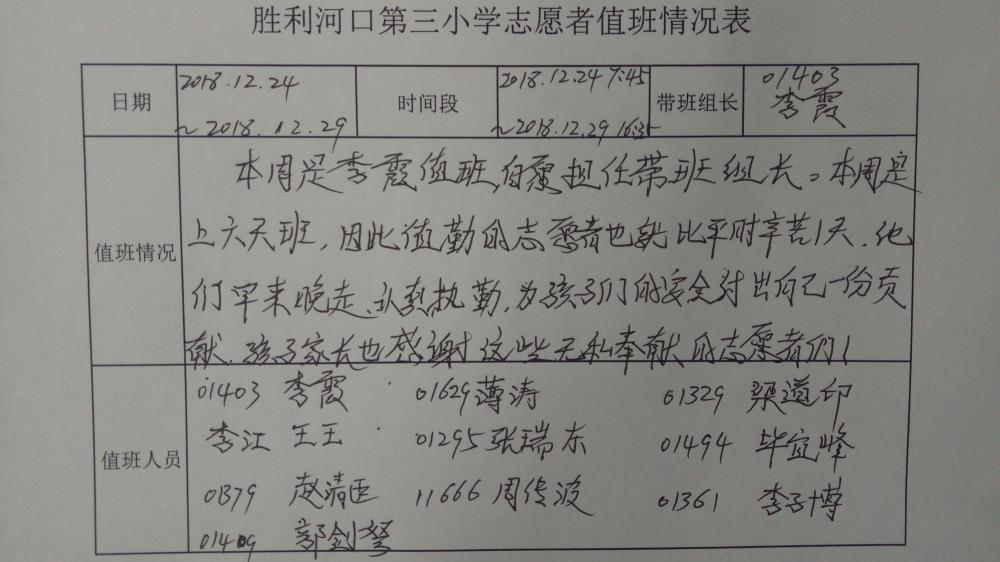 胜利河口第三小学志愿者值班情况表
日期 2018.12.24 ~2018.12.29 时间段 2018.12.24 7:45 ~2018.12.29 16:35 带班组长 01403 李霞
值班情况
本周是李霞值班,自愿担任带班组长。本周是
上六天班,因此值勤的志愿者也就比平时辛苦1天,他
们早来晚走、认真执勤,为孩子们的安全付出自己一份贡
献,孩子家长也感谢这些无私奉献的志愿者们!
值班人员
01403 李霞 01629 薄涛 01329 梁道印
李江 王王 01295 张瑞东 01494 毕宜峰
01379 赵清臣 11666 周传波 01361 李子博
01409 郭剑